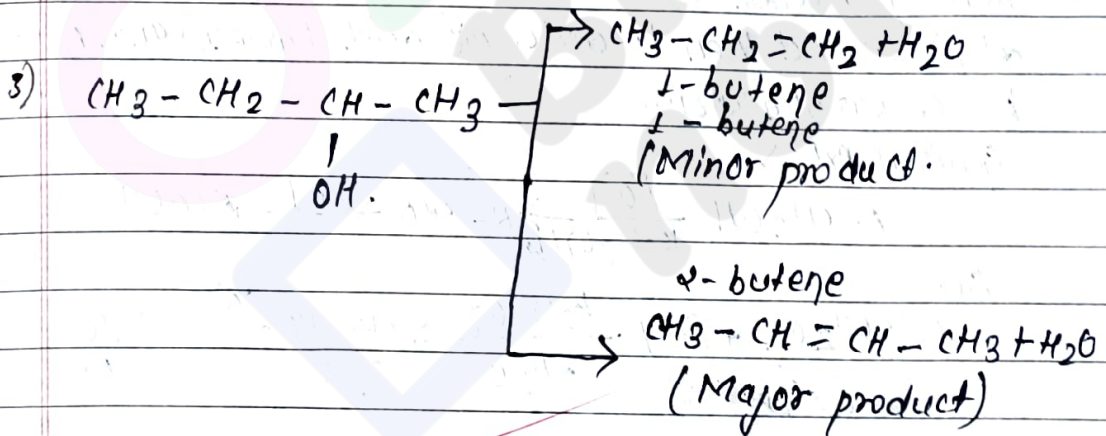 CH3-CH2=CH2 +H2O
3) CH3 - CH2 - CH - CH3
1-butene
1-butene
OH.
(Minor product.
2-butene
CH3 - CH = CH - CH3 + H2O
(Major product)